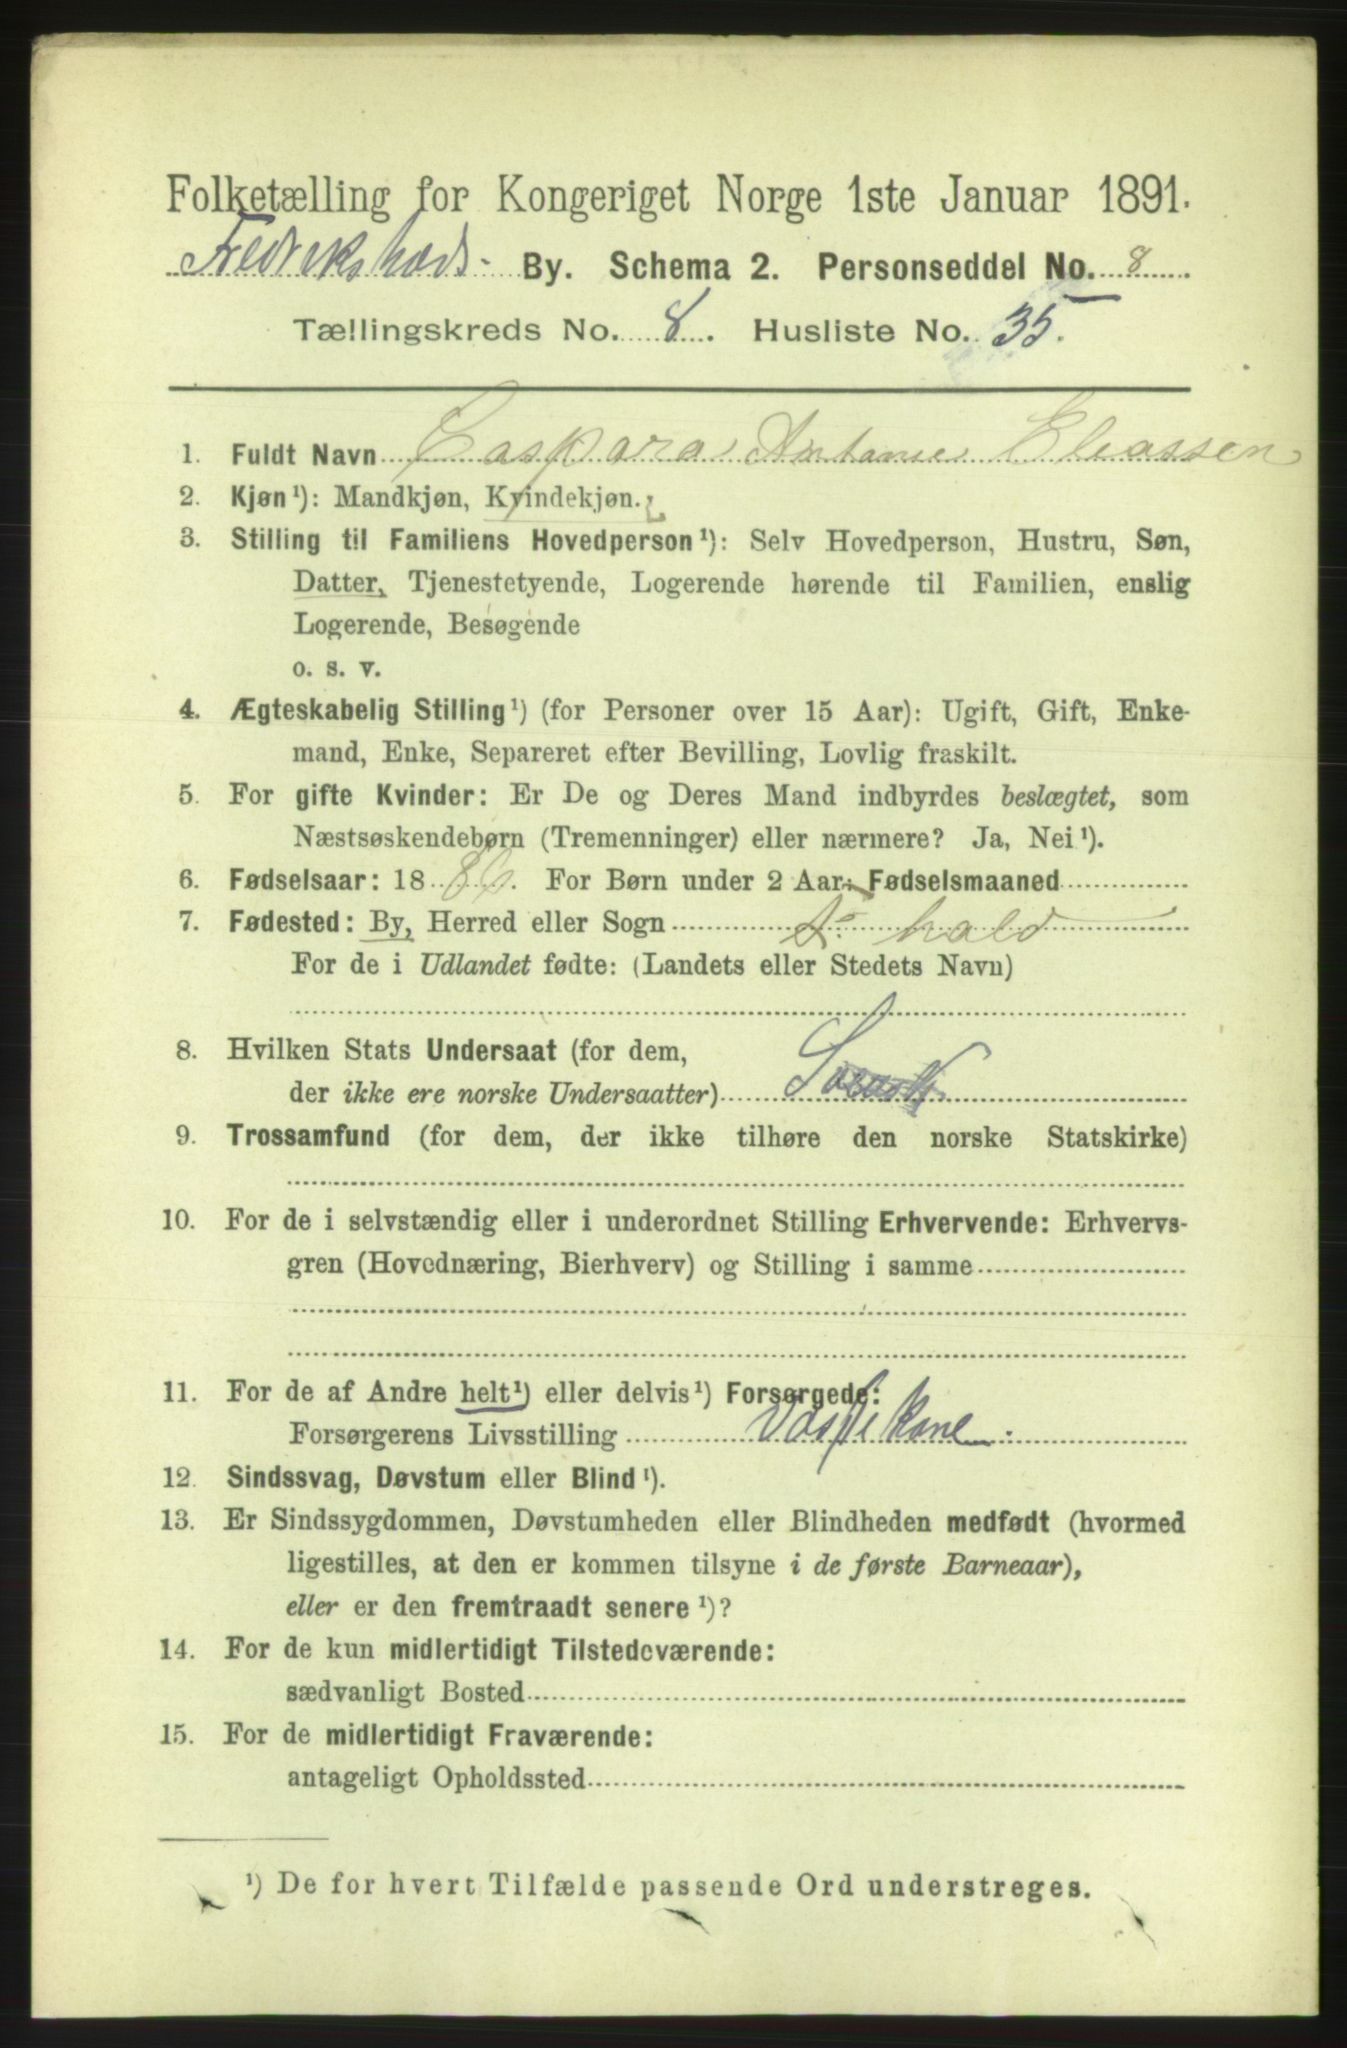 Folketælling for Kongeriget Norge 1ste Januar 1891.
Fredrikshalds By. Schema 2. Personseddel No. 8
Tællingskreds No. 8. Husliste No. 35.
1. Fuldt Navn Caspara Antonie Eliassen
2. Kjøn¹): Mandkjøn, Kvindekjøn.
3. Stilling til Familiens Hovedperson¹): Selv Hovedperson, Hustru, Søn,
Datter, Tjenestetyende, Logerende hørende til Familien, enslig
Logerende, Besøgende
o. s. v.
4. Ægteskabelig Stilling¹) (for Personer over 15 Aar): Ugift, Gift, Enke-
mand, Enke, Separeret efter Bevilling, Lovlig fraskilt.
5. For gifte Kvinder: Er De og Deres Mand indbyrdes beslægtet, som
Næstsøskendebørn (Tremenninger) eller nærmere? Ja, Nei¹).
6. Fødselsaar: 1886. For Børn under 2 Aar: Fødselsmaaned
7. Fødested: By, Herred eller Sogn hald
For de i Udlandet fødte: (Landets eller Stedets Navn)
8. Hvilken Stats Undersaat (for dem,
der ikke ere norske Undersaatter) Svensk
9. Trossamfund (for dem, der ikke tilhøre den norske Statskirke)
10. For de i selvstændig eller i underordnet Stilling Erhvervende: Erhvervs-
gren (Hovednæring, Bierhverv) og Stilling i samme
11. For de af Andre helt¹) eller delvis¹) Forsørgede:
Forsørgerens Livsstilling Vaskekone.
12. Sindssvag, Døvstum eller Blind¹).
13. Er Sindssygdommen, Døvstumheden eller Blindheden medfødt (hvormed
ligestilles, at den er kommen tilsyne i de første Barneaar),
eller er den fremtraadt senere¹)?
14. For de kun midlertidigt Tilstedeværende:
sædvanligt Bosted
15. For de midlertidigt Fraværende:
antageligt Opholdssted
¹) De for hvert Tilfælde passende Ord understreges.